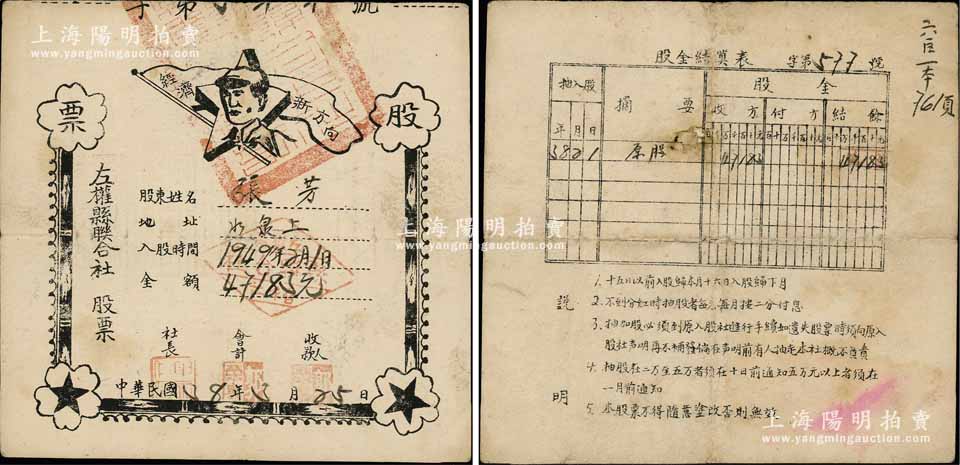 上海陽明拍賣
www.yangmingauction.com
字第
號
經濟
新方向
票
股
左權縣聯合社 股票
股東姓名 張芳
地址 水泉上
入股時間 1949年2月1日
金額 47183元
社長
會計
收款人
中華民國38年3月25日
上海陽明拍賣
www.yangmingauction.com
股金結算表 字第577號
六百一本
761頁
抽入股
年月日
摘要
股金
收方
付方
結餘
38 2 1 原股 47183 47183
說明
1. 十五日以前入股歸本月十六日入股歸下月
2. 不到分紅時抽股者每元每月按二分付息
3. 抽加股必須到原入股社進行手續如遺失股票時須向原入
股社声明再不補發倘在声明前有人抽走本社概不負責
4. 抽股在二万至五万者須在十日前通知五万元以上者須在
一月前通知
5. 本股票不得隨意塗改否則無效
上海陽明拍賣
www.yangmingauction.com